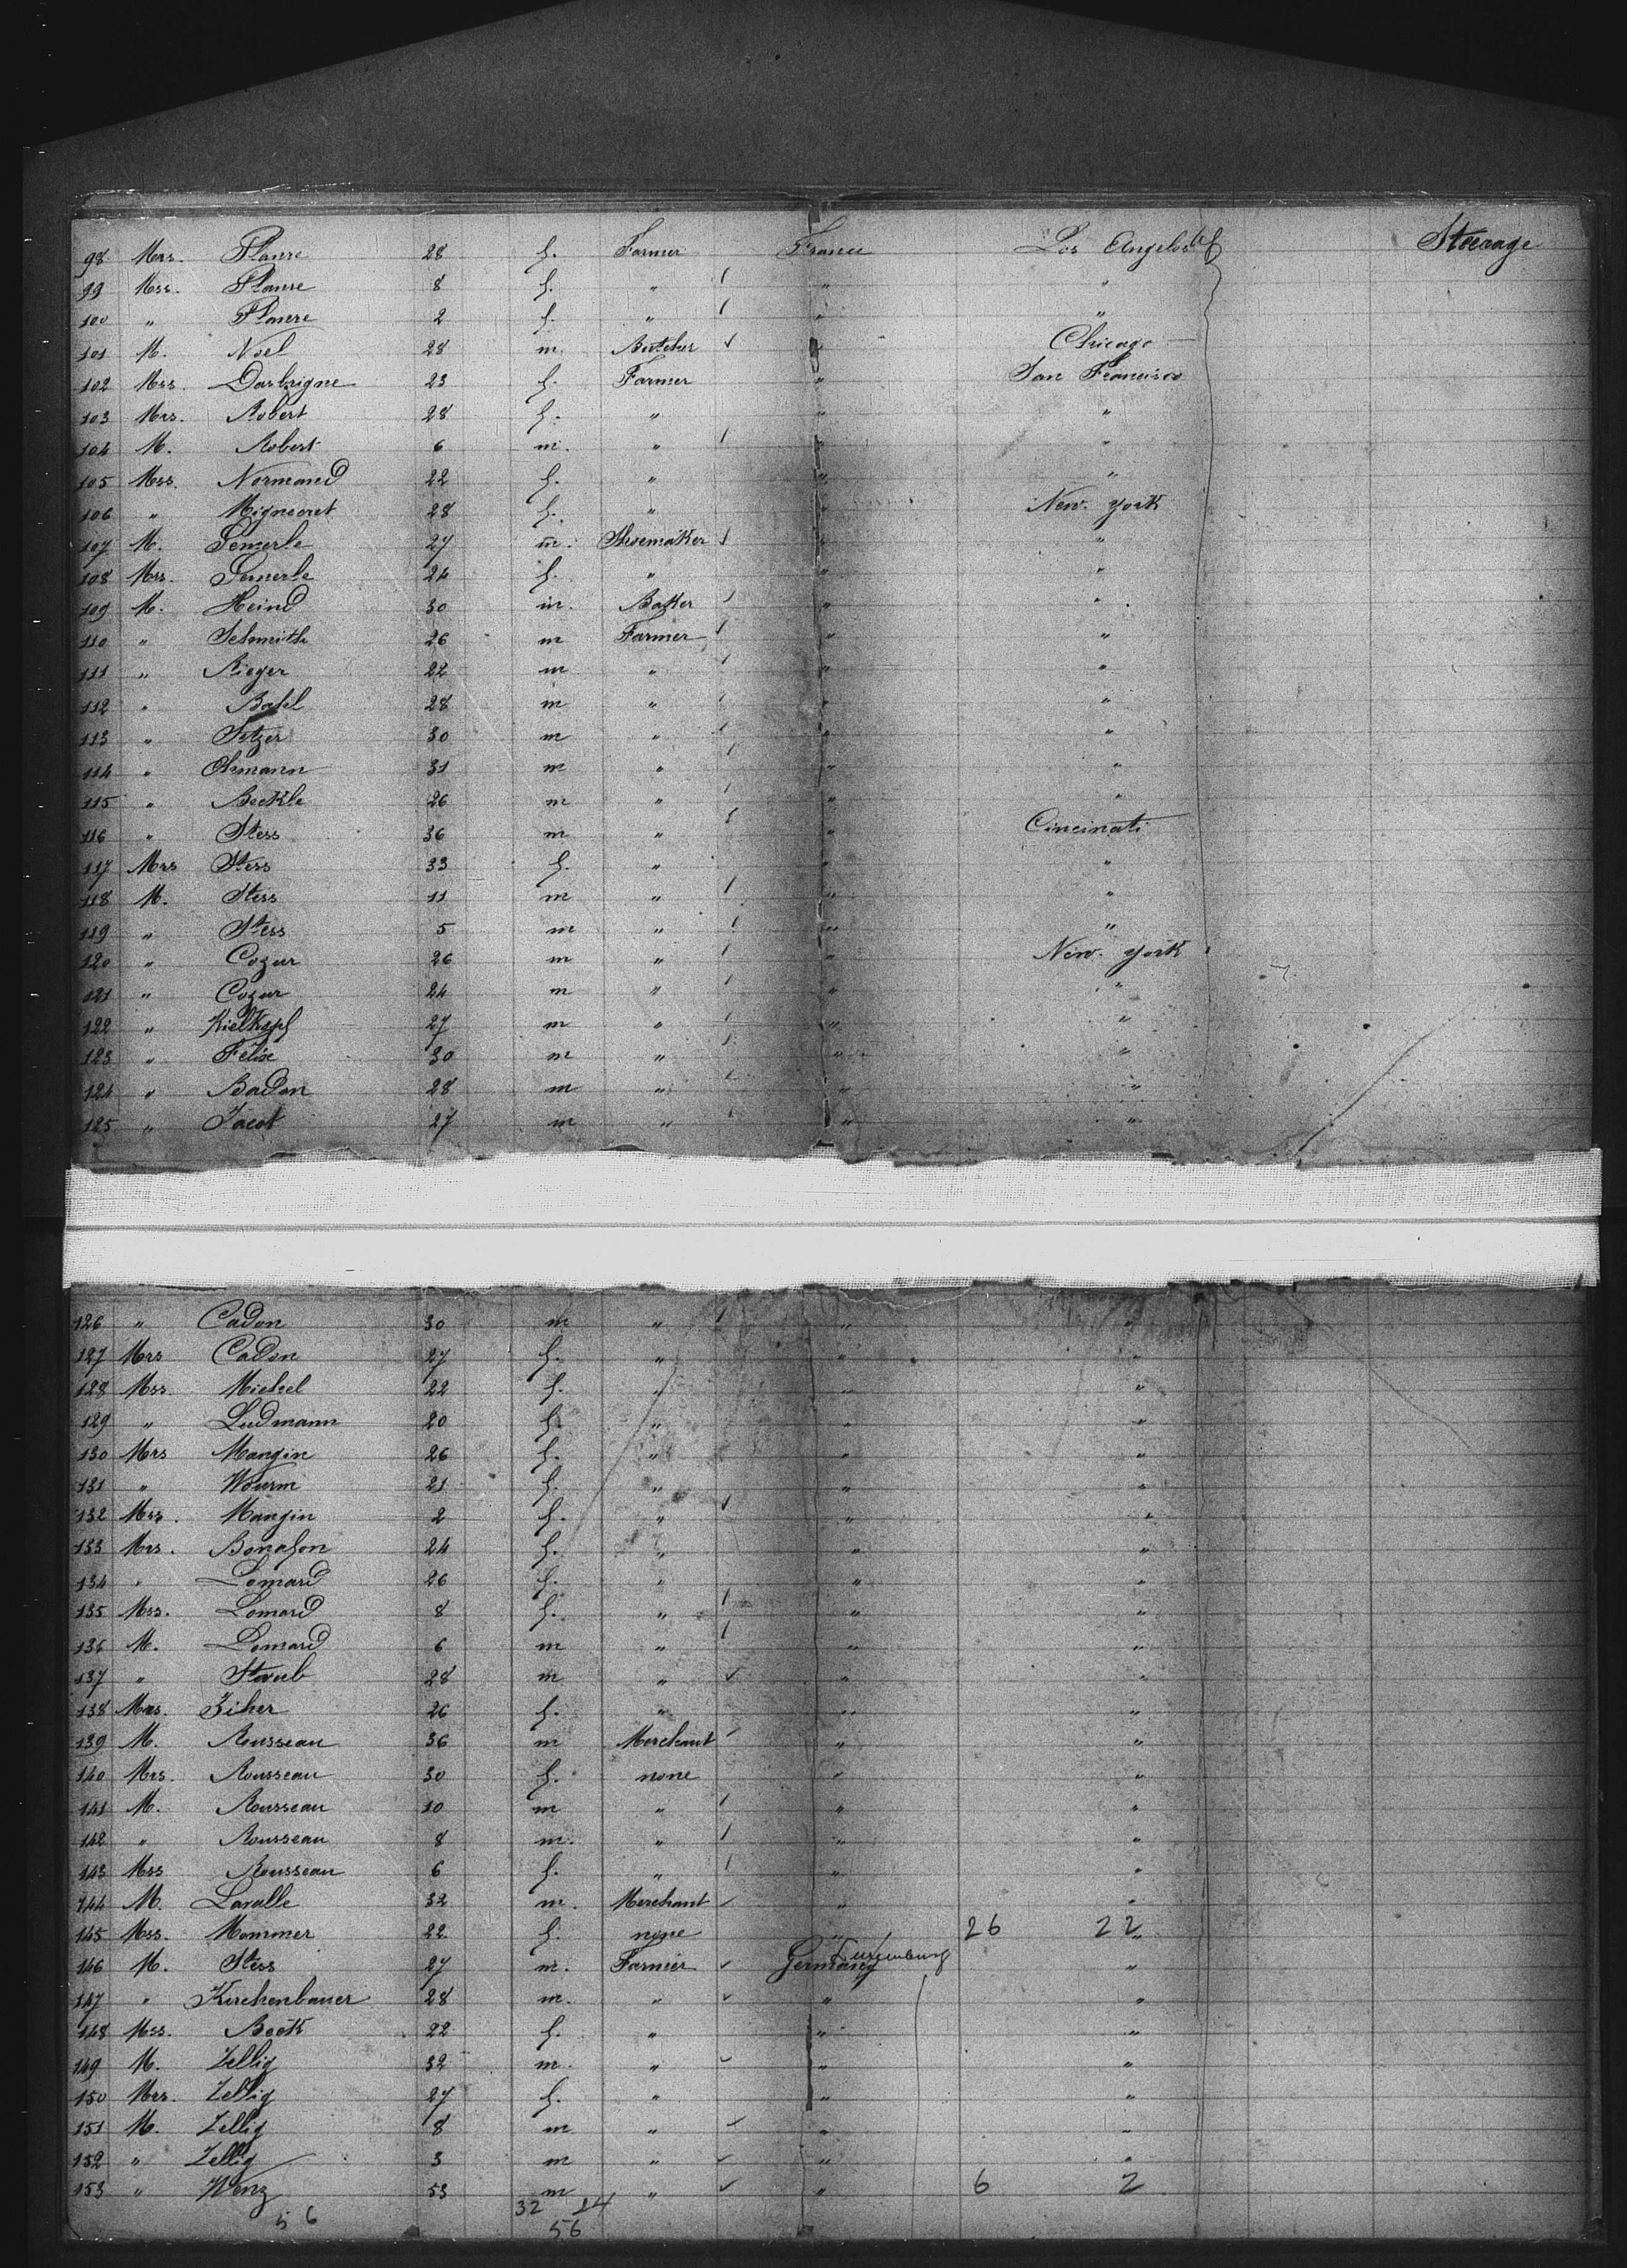 98 Mrs. Planre 28 f. Farmer France Los Angelos Steerage
99 Mss. Planre 8 f. " " "
100 " Planre 2 f. " " "
101 M. Noel 28 m. Butcher " Chicago
102 Mss. Darbrigne 23 f. Farmer " San Francisco
103 Mrs. Robert 28 f. " " "
104 M. Robert 6 m. " " "
105 Mss. Normand 22 f. " " "
106 " Migneeret 28 f. " " New. york
107 M. Semerle 27 m. Shoemaker " "
108 Mrs. Semerle 24 f. " " "
109 M. Heind 30 m. Baker " "
110 " Schmith 26 m Farmer " "
111 " Rieger 22 m " " "
112 " Bahl 28 m " " "
113 " Setzer 30 m " " "
114 " Ohmann 31 m " " "
115 " Beckle 26 m " " "
116 " Stess 36 m " " Cincinati
117 Mrs Stess 33 f. " " "
118 M. Stess 11 m " " "
119 " Stess 5 m " " "
120 " Cozur 26 m " " New. york
121 " Cozur 24 m " " "
122 " Kielkopf 27 m " " "
123 " Felix 30 m " " "
124 " Badon 28 m " " "
125 " Jacot 27 m " " "
126 " Cadon 30 m " " "
127 Mrs Cadon 27 f. " " "
128 Mss. Michel 22 f. " " "
129 " Ludmann 20 f. " " "
130 Mrs Mangin 26 f. " " "
131 " Wourm 21 f. " " "
132 Mss. Mangin 2 f. " " "
133 Mrs. Bonafon 24 f. " " "
134 " Lomard 26 f. " " "
135 Mss. Lomard 8 f. " " "
136 M. Lomard 6 m " " "
137 " Staub 28 m " " "
138 Mrs. Ziher 26 f. " " "
139 M. Rousseau 36 m Merchant " "
140 Mrs. Rousseau 30 f. none " "
141 M. Rousseau 10 m " " "
142 " Rousseau 8 m. " " "
143 Mss Rousseau 6 f. " " "
144 M. Lavalle 32 m. Merchant " "
145 Mss. Mommer 22 f. none " 26 22 "
146 M. Stess 27 m. Farmer Germany Luxemburg "
147 " Kirchenbauer 28 m. " " "
148 Mss. Beck 22 f. " " "
149 M. Zellig 32 m. " " "
150 Mrs. Zellig 27 f. " " "
151 M. Zellig 8 m " " "
152 " Zellig 3 m " " "
153 " Wenz 53 m " " 6 2
56 32 24
56